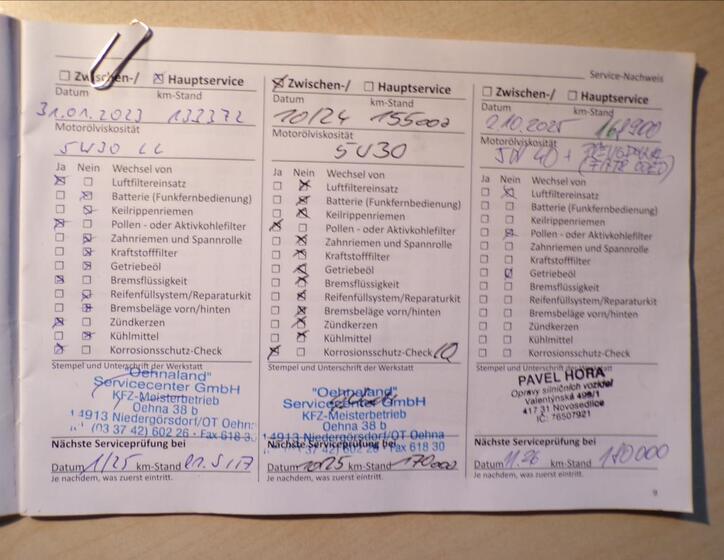 Service-Nachweis
☐ Zwischen-/ ☒ Hauptservice
Datum km-Stand
31.01.2023 132372
Motorölviskosität
5W30 LL
Ja Nein Wechsel von
☒ ☐ Luftfiltereinsatz
☐ ☒ Batterie (Funkfernbedienung)
☐ ☒ Keilrippenriemen
☒ ☐ Pollen - oder Aktivkohlefilter
☐ ☒ Zahnriemen und Spannrolle
☐ ☒ Kraftstofffilter
☐ ☒ Getriebeöl
☒ ☐ Bremsflüssigkeit
☐ ☒ Reifenfüllsystem/Reparaturkit
☐ ☒ Bremsbeläge vorn/hinten
☒ ☐ Zündkerzen
☐ ☒ Kühlmittel
☒ ☐ Korrosionsschutz-Check
Stempel und Unterschrift der Werkstatt
"Oehnaland"
Servicecenter GmbH
KFZ-Meisterbetrieb
Oehna 38 b
14913 Niedergörsdorf/OT Oehna
(03 37 42) 602 26 · Fax 618 30
Nächste Serviceprüfung bei
Datum 1/25 km-Stand
Je nachdem, was zuerst eintritt.
☒ Zwischen-/ ☐ Hauptservice
Datum km-Stand
10/24 155002
Motorölviskosität
5W30
Ja Nein Wechsel von
☐ ☒ Luftfiltereinsatz
☐ ☒ Batterie (Funkfernbedienung)
☐ ☒ Keilrippenriemen
☒ ☐ Pollen - oder Aktivkohlefilter
☐ ☒ Zahnriemen und Spannrolle
☐ ☒ Kraftstofffilter
☐ ☒ Getriebeöl
☐ ☒ Bremsflüssigkeit
☐ ☒ Reifenfüllsystem/Reparaturkit
☐ ☒ Bremsbeläge vorn/hinten
☐ ☒ Zündkerzen
☐ ☒ Kühlmittel
☒ ☐ Korrosionsschutz-Check
Stempel und Unterschrift der Werkstatt
"Oehnaland"
Servicecenter GmbH
KFZ-Meisterbetrieb
Oehna 38 b
14913 Niedergörsdorf/OT Oehna
37 42) 602 26 · Fax 618 30
Nächste Serviceprüfung bei
Datum 10/25 km-Stand 170000
Je nachdem, was zuerst eintritt.
☐ Zwischen-/ ☐ Hauptservice
Datum km-Stand
2.10.2025
Motorölviskosität
5W 40 +
Ja Nein Wechsel von
☐ ☒ Luftfiltereinsatz
☐ ☐ Batterie (Funkfernbedienung)
☐ ☐ Keilrippenriemen
☐ ☒ Pollen - oder Aktivkohlefilter
☐ ☐ Zahnriemen und Spannrolle
☐ ☐ Kraftstofffilter
☐ ☒ Getriebeöl
☐ ☐ Bremsflüssigkeit
☐ ☐ Reifenfüllsystem/Reparaturkit
☐ ☐ Bremsbeläge vorn/hinten
☐ ☐ Zündkerzen
☐ ☐ Kühlmittel
☐ ☐ Korrosionsschutz-Check
Stempel und Unterschrift der Werkstatt
PAVEL HORA
Opravy silničních vozidel
Valentýnská 498/1
417 31 Novosedlice
IČ: 76507921
Nächste Serviceprüfung bei
Datum 11.26 km-Stand 180000
Je nachdem, was zuerst eintritt.
9